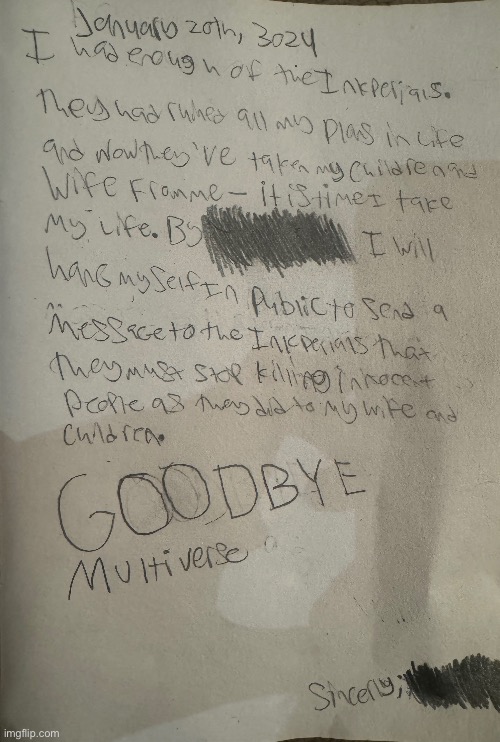 January 20th, 3024
I had enough of the Inkperials.
They had ruined all my plans in life
and now they've taken my children and
wife from me — it is time I take
my life. By I will
hang myself in public to send a
message to the Inkperials that
they must stop killing innocent
people as they did to my wife and
children.
GOODBYE
Multiverse
Sincerly,
imgflip.com